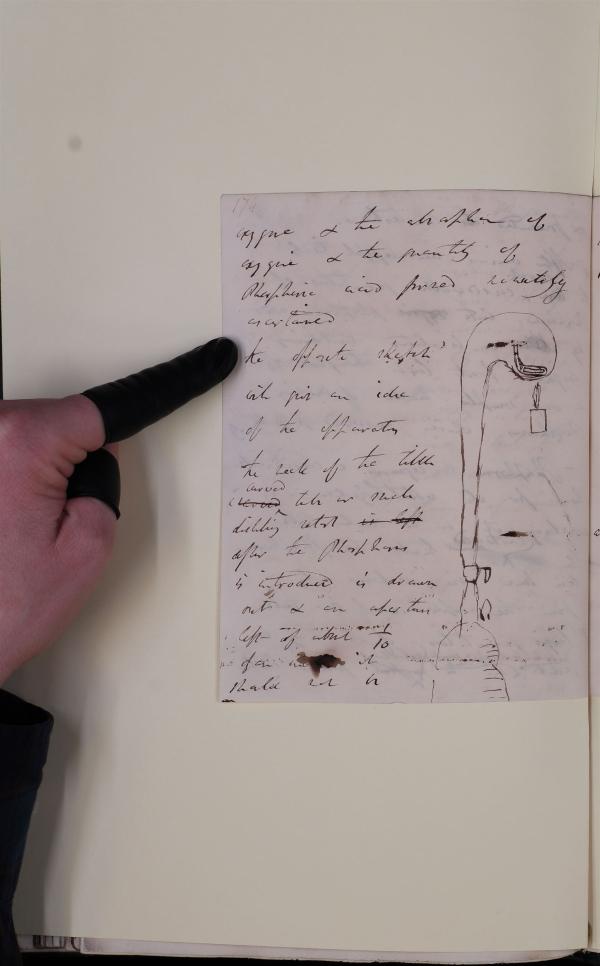 174
oxygene & the absorption of
oxygene & the quantity of
Phosphoric acid formed accurately
ascertained
The opposite sketch
will give an idea
of the apparatus
The neck of the little
curved
tube or such
distilling retort is left
after the Phosphorus
is introduced is drawn
out & an aperture
left of about 1/10
of an it
should not be